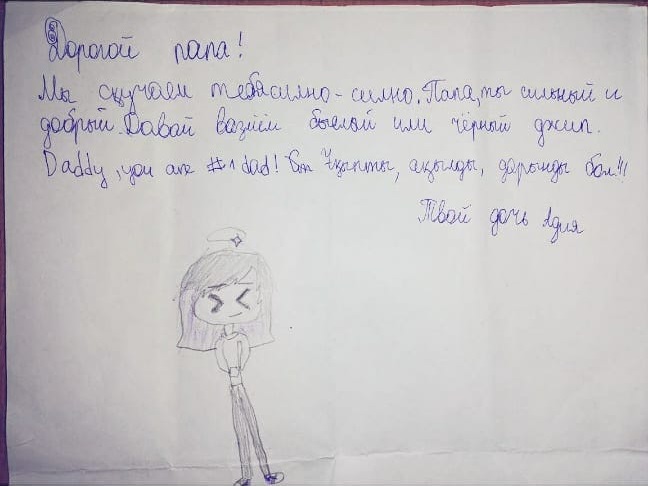 Дорогой папа!
Мы скучаем тебясилно-силно. Папа, ты сильный и
добрый. Давай вазмём быелый или чёрный джип.
Daddy, you are #1 dad! Ұқыпты, ақылды, дарынды бол!!!
Твой дочь Адия